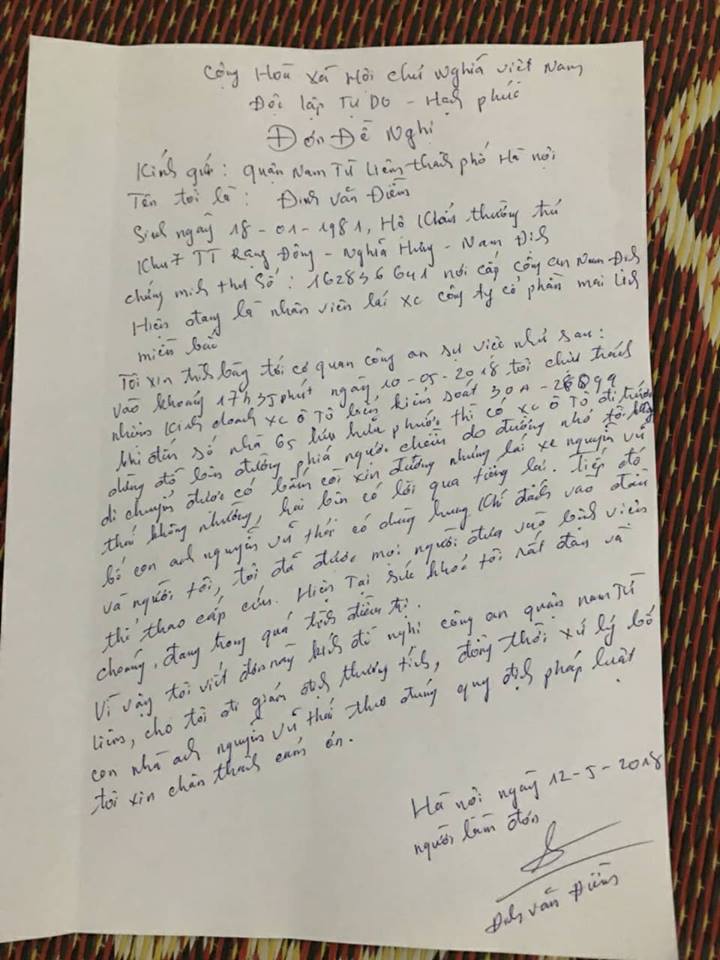 Cộng Hoà xã Hội chủ Nghĩa việt Nam
Độc lập Tự Do - Hạnh phúc
Đơn Đề Nghị
Kính gửi : quận Nam Từ Liêm thành phố Hà nội
Tên tôi là : Đinh văn Điềm
Sinh ngày 18 - 01 - 1981, Hộ khẩu thường trú
khu 7 TT Rạng Đông - Nghĩa Hưng - Nam Định
chứng minh thư số : 162836641 nơi cấp công an Nam Định
Hiện đang là nhân viên lái xe công ty cổ phần mai linh
miền bắc
Tôi xin trình bày tới cơ quan công an sự việc như sau :
vào khoảng 17h35 phút ngày 10-05-2018 tôi chịu trách
nhiệm kinh doanh xe ô tô biển kiểm soát 30A-
khi đến số nhà 65 lưu hữu phước thì có xe ô tô đi trước
dừng đỗ bên đường phía ngược chiều do đường nhỏ tôi không
di chuyển được có bấm còi xin đường nhưng lái xe nguyễn vũ
thái không nhường, hai bên có lời qua tiếng lại. tiếp đó
bố con anh nguyễn vũ thái có dùng hung khí đánh vào đầu
và người tôi, tôi đã được mọi người đưa vào bệnh viện
thể thao cấp cứu. Hiện Tại sức khoẻ tôi rất đau và
choáng, đang trong quá trình điều trị.
Vì vậy tôi viết đơn này kính đề nghị công an quận nam Từ
liêm, cho tôi đi giám định thương tích, đồng thời xử lý bố
con nhà anh nguyễn vũ thái theo đúng quy định pháp luật
tôi xin chân thành cảm ơn.
Hà nội ngày 12-5-2018
người làm đơn
Đinh văn Điềm